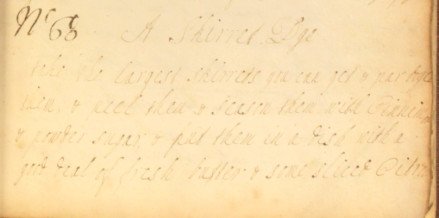 No 68 A Skirret Pye
take the largest skirrets you can get & par boyle
them, & peel them & season them with Cinnamon
& powder sugar, & put them in a dish with a
good deal of fresh butter & some sliced Citron